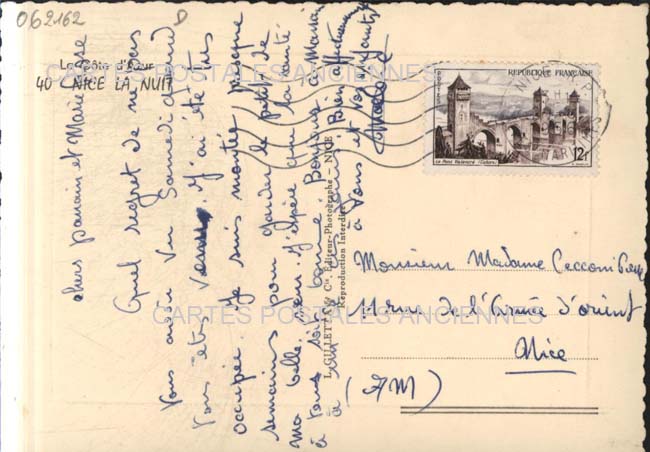 062162
La Côte d'Azur
40 - NICE LA NUIT
chers parrain et Marie Rose
Quel regret de ne pas
vous avoir vu Samedi quand
vous êtes venus. J'ai été très
occupée. Je suis montée presque
semaines pour garder le petit de
ma belle sœur. J'espère que la santé
à tous soit bonne. Bonjour à Maria
à vous et vos enfants
REPUBLIQUE FRANÇAISE
POSTES
12F
Le Pont Valentré (Cahors)
NICE
L. GILLETTA & Cie, Editeur-Photographe - NICE
Reproduction Interdite
Monsieur Madame Cecconi
11 rue de l'Armée d'orient
Nice
(AM)
CARTES POSTALES ANCIENNES
CARTES POSTALES ANCIENNES